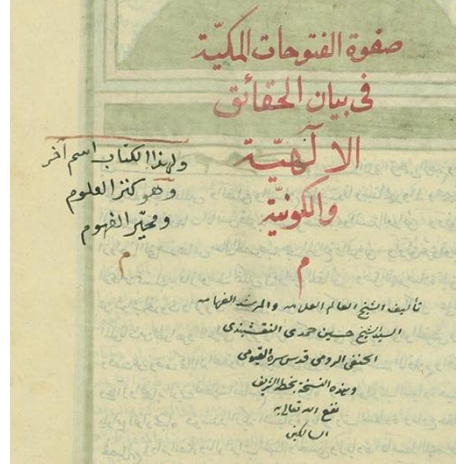 صفوة الفتوحات المكيّة
فى بيان الحقائق
الالٓهيّة
والكونيّة
م
ولهذا الكتاب اسم آخر
وهو كنز العلوم
ومحيّر الفهوم
م
تأليف الشيخ العالم العلامه والمرشد الفهامه
السيد الشيخ حسين حمدى النقشبندى
الحنفى الرومى قدس سره القيومى
وهذه النسخة بخطه الشريف
نفع الله تعالى به
السالكين